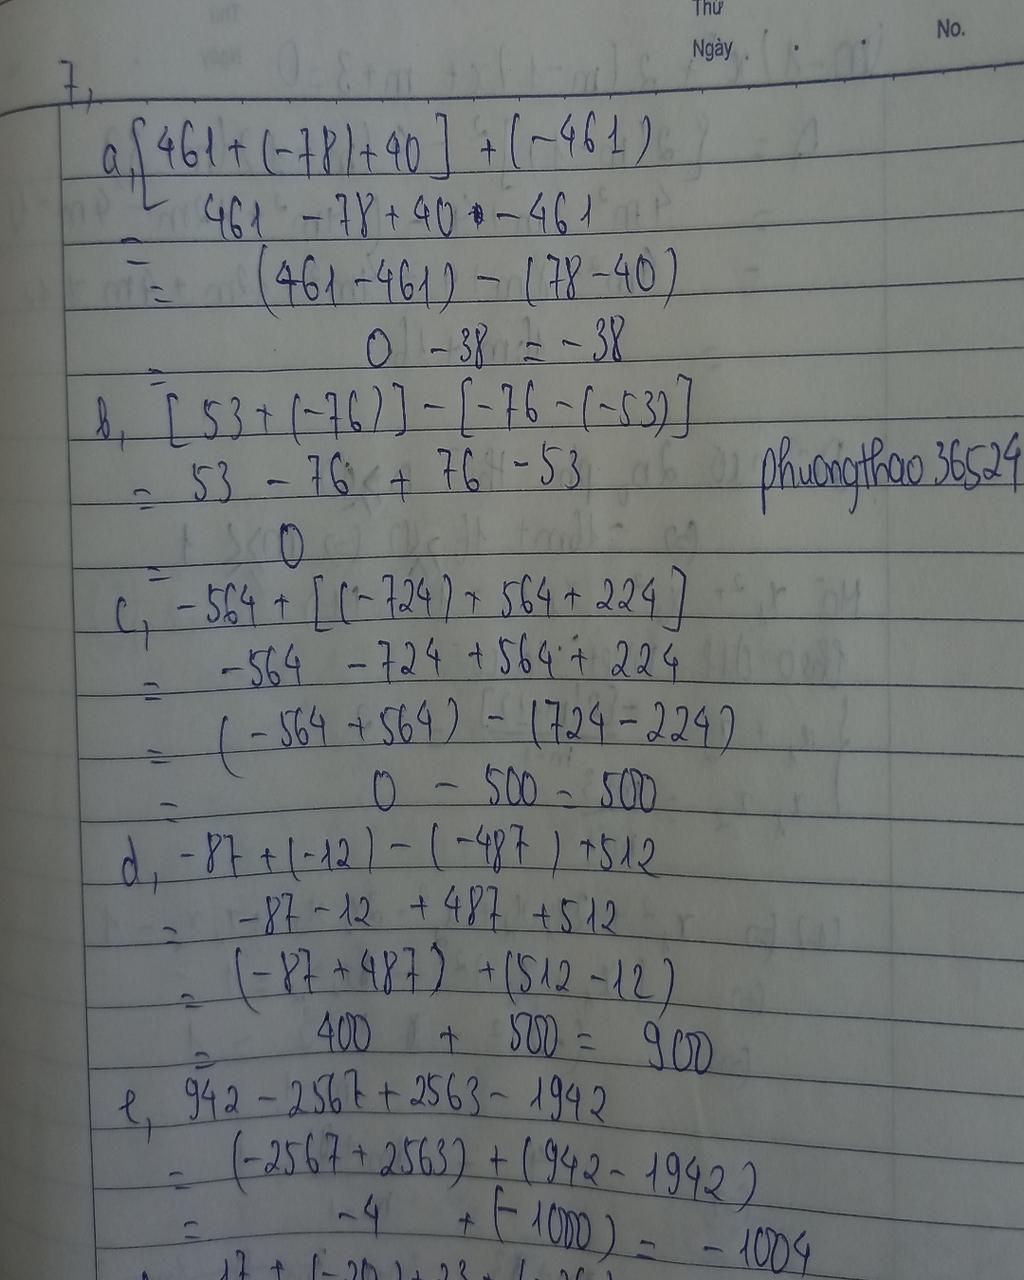 Thứ
Ngày . . .
No.
7,
a, [461 + (-78) + 40] + (-461)
= 461 - 78 + 40 - 461
= (461 - 461) - (78 - 40)
= 0 - 38 = - 38
b, [53 + (-76)] - [-76 - (-53)]
= 53 - 76 + 76 - 53
phuongthao36524
= 0
c, -564 + [(-724) + 564 + 224]
= -564 - 724 + 564 + 224
= (-564 + 564) - (724 - 224)
= 0 - 500 = 500
d, -87 + (-12) - (-487) + 512
= -87 - 12 + 487 + 512
= (-87 + 487) + (512 - 12)
= 400 + 500 = 900
e, 942 - 2567 + 2563 - 1942
= (-2567 + 2563) + (942 - 1942)
= -4 + (-1000) = -1004
17 + (-20) + 23 +